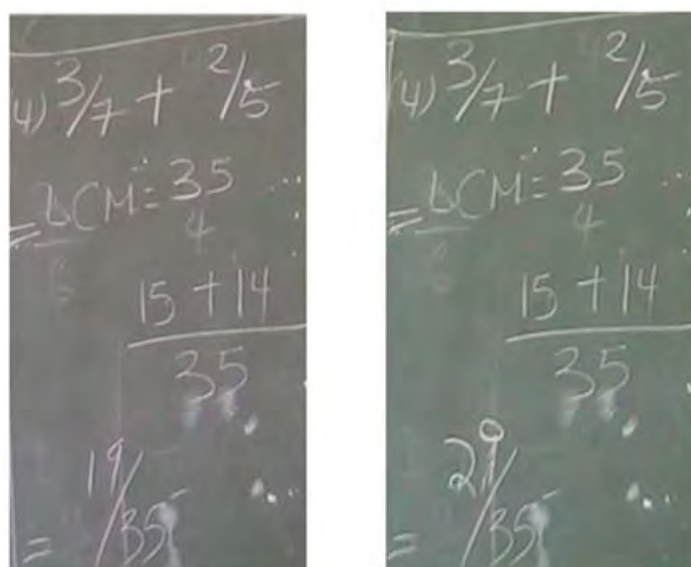 (4) 3/7 + 2/5
= LCM = 35
4
6
15 + 14
35
= 19/35
(4) 3/7 + 2/5
= LCM = 35
4
6
15 + 14
35
= 29/35